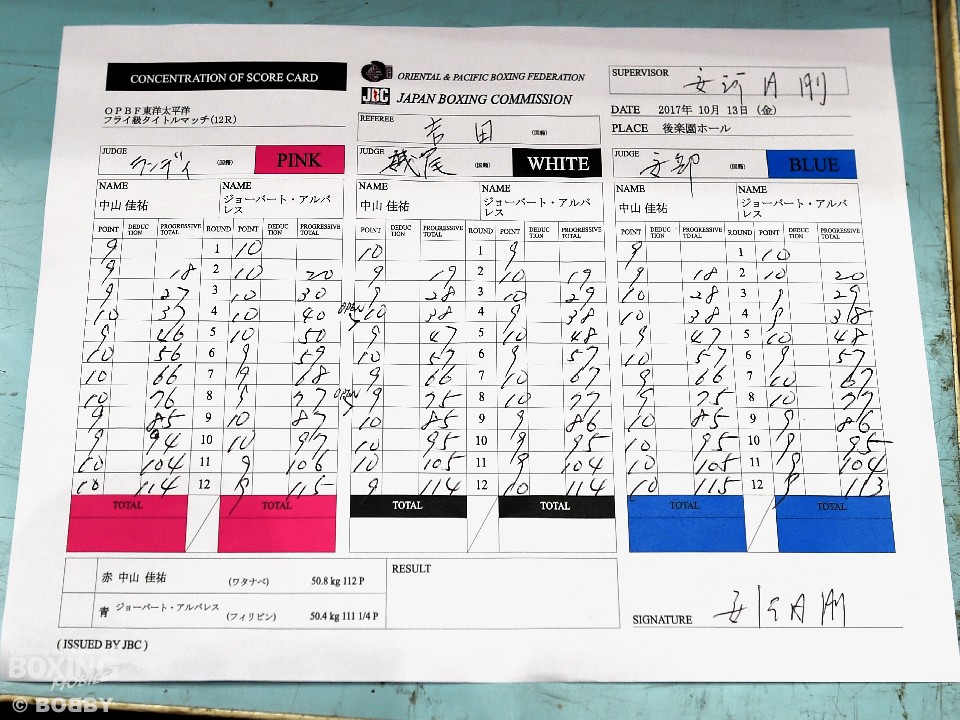 CONCENTRATION OF SCORE CARD
ORIENTAL & PACIFIC BOXING FEDERATION
JBC JAPAN BOXING COMMISSION
SUPERVISOR 安河内 剛
OPBF東洋太平洋
フライ級タイトルマッチ(12R)
REFEREE 吉田 (国籍)
DATE 2017年 10月 13日 (金)
PLACE 後楽園ホール
JUDGE ランディ (国籍) PINK JUDGE (国籍) WHITE JUDGE 安部 (国籍) BLUE
NAME NAME NAME NAME NAME NAME
中山 佳祐 ジョーバート・アルバレス 中山 佳祐 ジョーバート・アルバレス 中山 佳祐 ジョーバート・アルバレス
POINT DEDUCTION PROGRESSIVE TOTAL ROUND POINT DEDUCTION PROGRESSIVE TOTAL POINT DEDUCTION PROGRESSIVE TOTAL ROUND POINT DEDUCTION PROGRESSIVE TOTAL POINT DEDUCTION PROGRESSIVE TOTAL ROUND POINT DEDUCTION PROGRESSIVE TOTAL
9 1 10 10 1 9 9 1 10
9 18 2 10 20 9 19 2 10 19 9 18 2 10 20
9 27 3 10 30 9 28 3 10 29 10 28 3 9 29
10 37 4 10 40 OPEN 10 38 4 9 38 10 38 4 9 38
9 46 5 10 50 9 47 5 10 48 9 47 5 10 48
10 56 6 9 59 10 57 6 9 57 10 57 6 9 57
10 66 7 9 68 9 66 7 10 67 9 66 7 10 67
10 76 8 9 77 OPEN 9 75 8 10 77 9 75 8 10 77
9 85 9 10 87 10 85 9 9 86 10 85 9 9 86
9 94 10 10 97 10 95 10 9 95 10 95 10 9 95
10 104 11 9 106 10 105 11 9 104 10 105 11 9 104
10 114 12 9 115 9 114 12 10 114 10 115 12 9 113
TOTAL TOTAL TOTAL TOTAL TOTAL TOTAL
赤 中山 佳祐 (ワタナベ) 50.8 kg 112 P
RESULT
青 ジョーバート・アルバレス (フィリピン) 50.4 kg 111 1/4 P
SIGNATURE 安河内 剛
( ISSUED BY JBC )
BOXING
MOBILE
© BOBBY